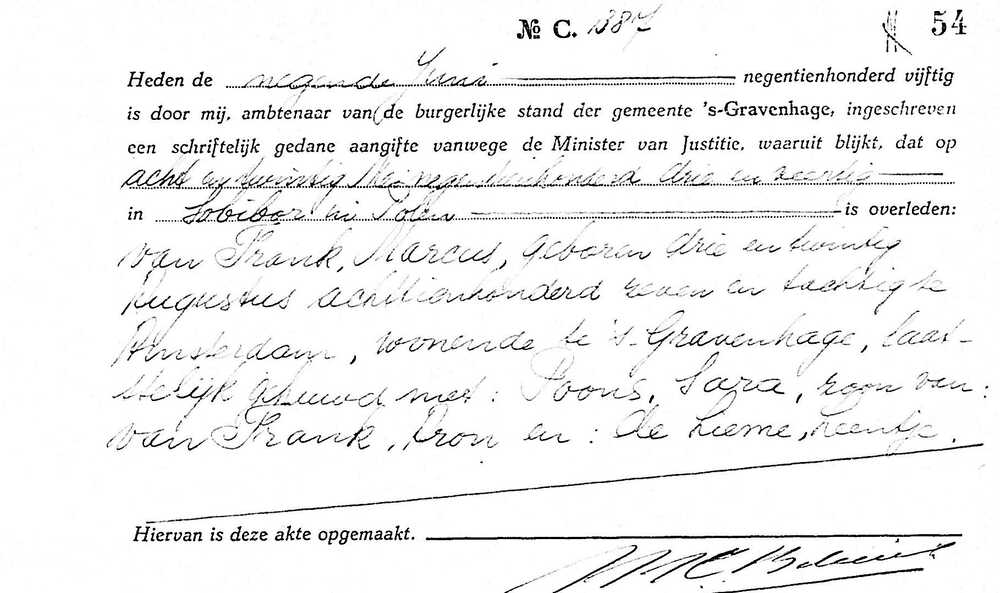 № C. 1387 54
Heden de negende Juni negentienhonderd vijftig
is door mij, ambtenaar van de burgerlijke stand der gemeente 's-Gravenhage, ingeschreven
een schriftelijk gedane aangifte vanwege de Minister van Justitie, waaruit blijkt, dat op
acht en twintig Mei negentienhonderd drie en veertig
in Sobibor in Polen is overleden:
van Frank, Marcus, geboren drie en twintig
Augustus achttienhonderd zeven en tachtig te
Amsterdam, wonende te 's-Gravenhage, laat-
stelijk gehuwd met: Poons, Sara, zoon van:
van Frank, Aron en: de Lieme, Leentje.
Hiervan is deze akte opgemaakt.